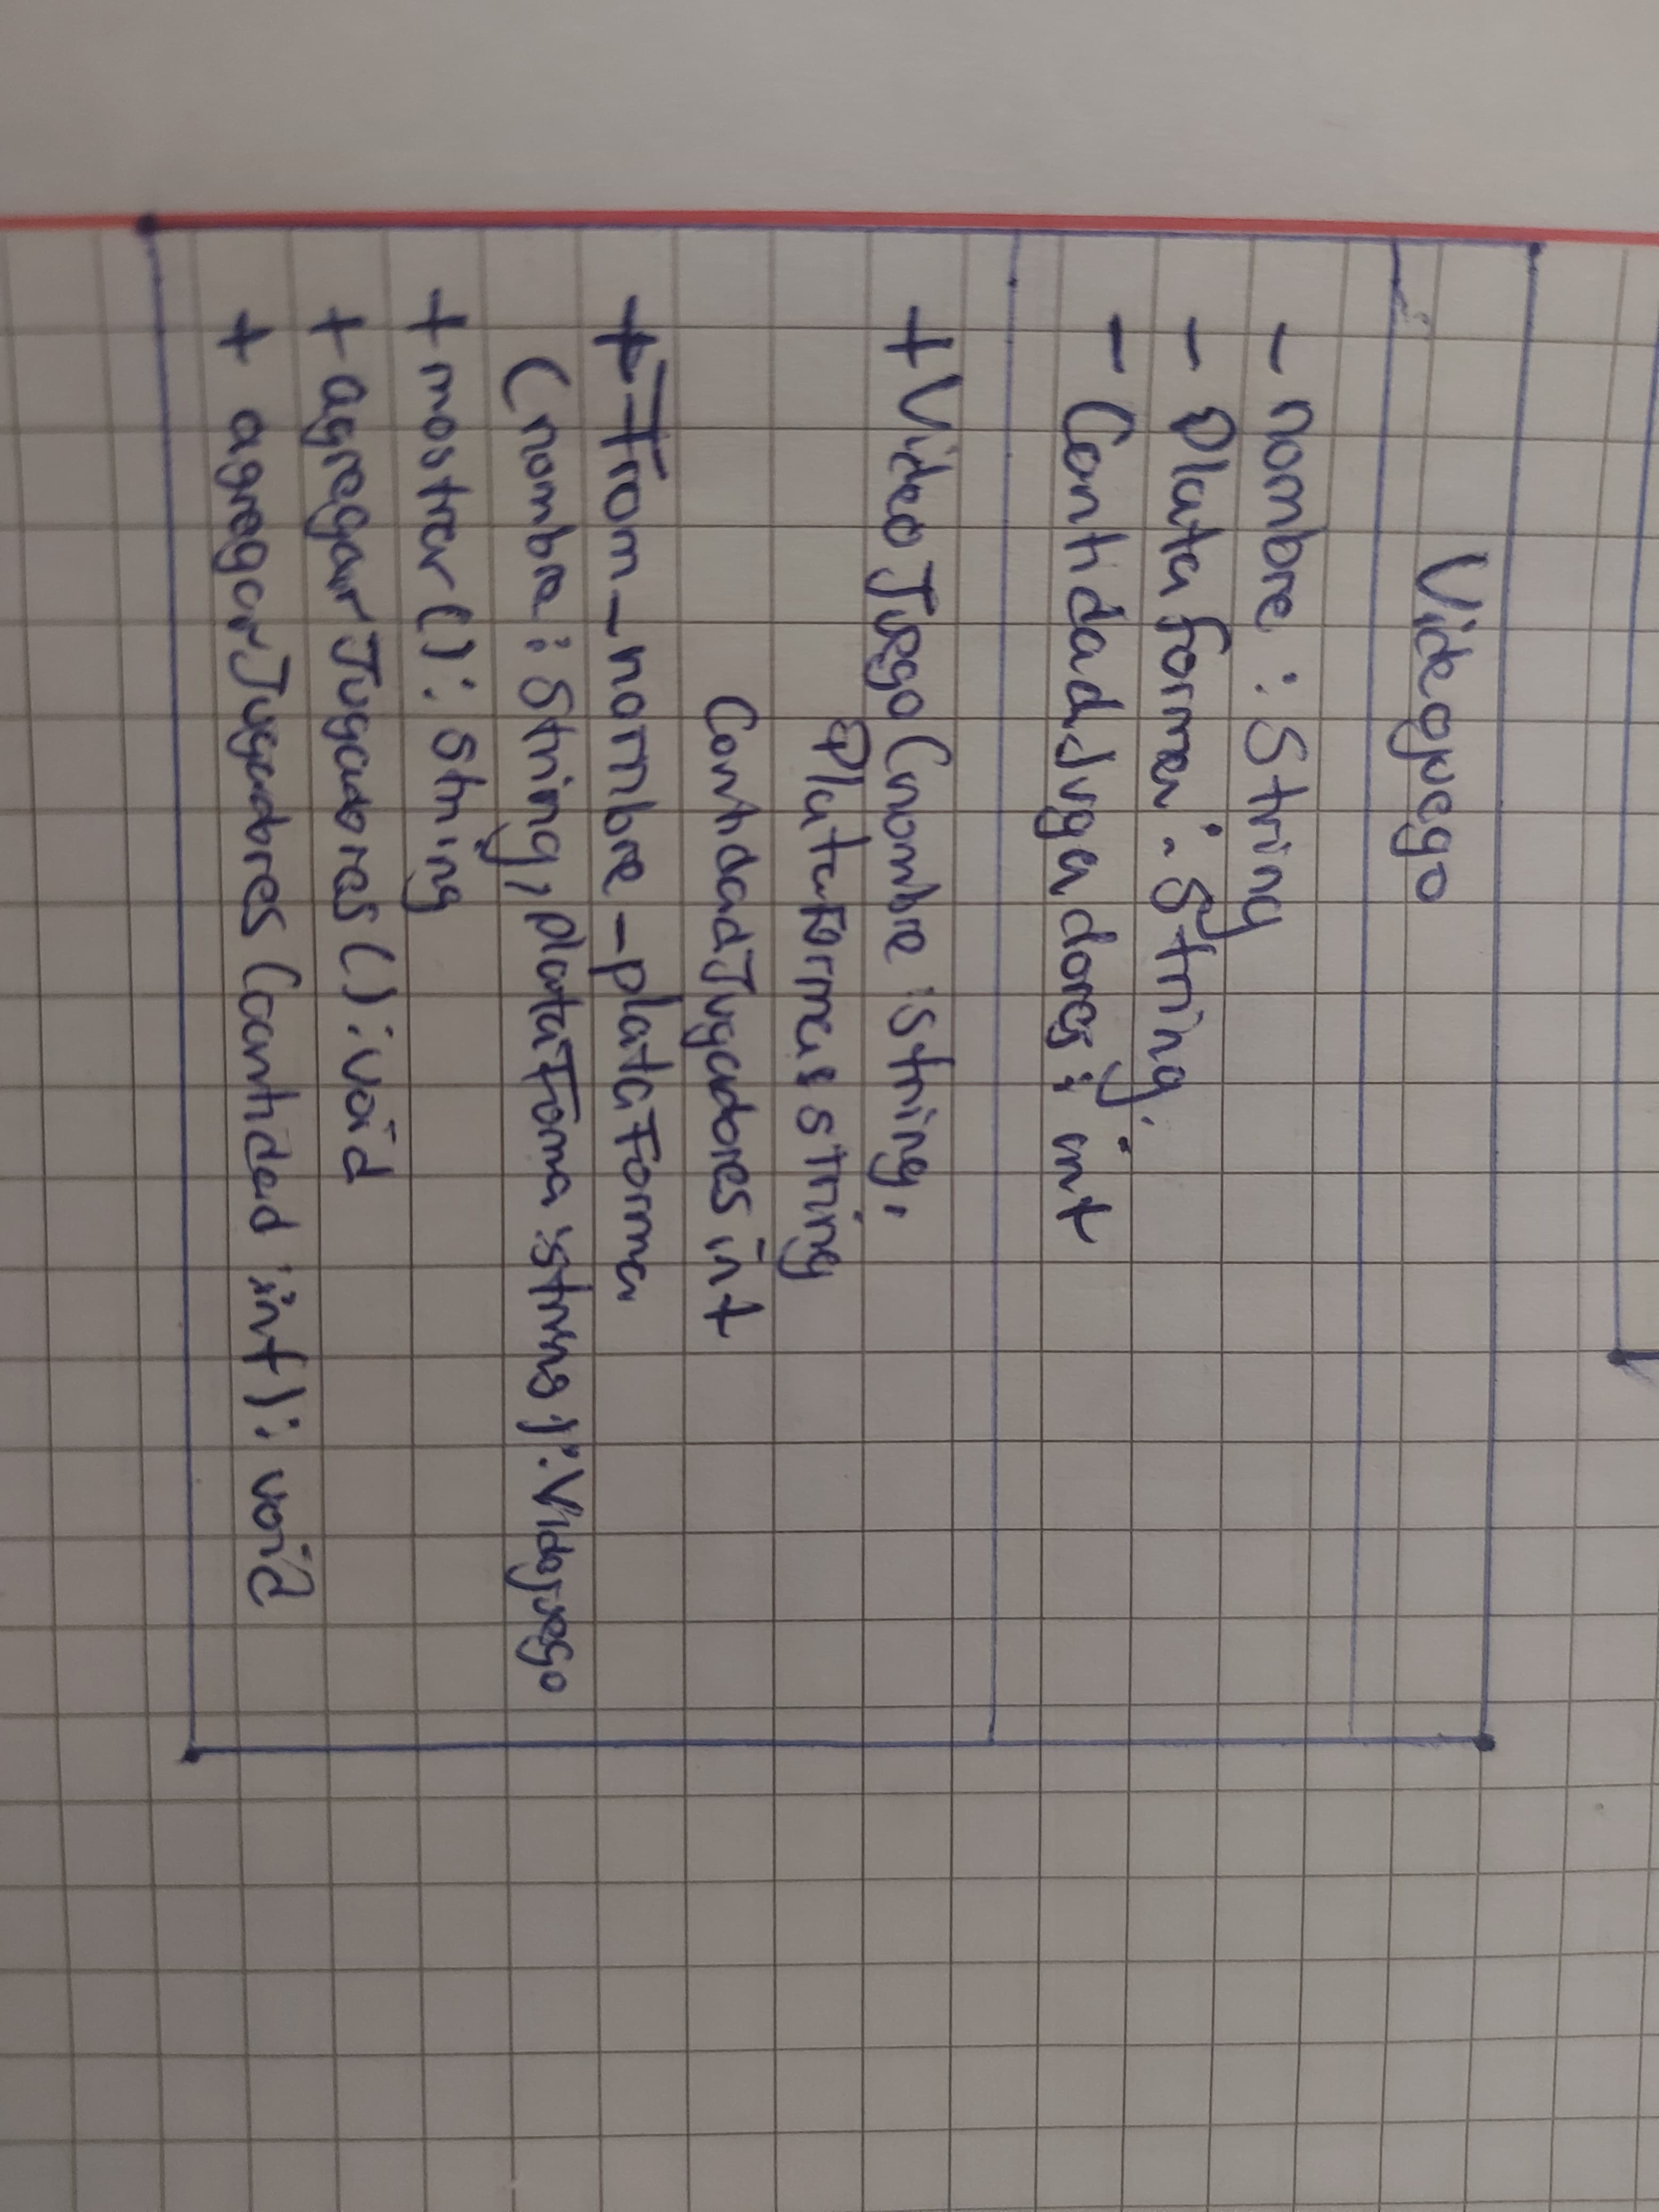 Videojuego
- nombre : String
- Plataforma : String
- CantidadJugadores : int
+ VideoJuego (nombre : string,
Plataforma : string
CantidadJugadores int
+ From_nombre_plataForma
(nombre : String, plataForma : string) : Videojuego
+ mostrar () : String
+ agregarJugadores () : void
+ agregarJugadores (cantidad : int) : void